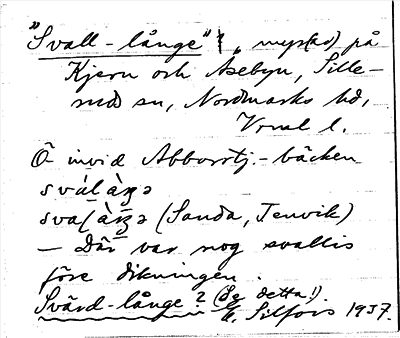 "Svall-långe" , myr(ar) på
Kjern och Åsebyn, Sille-
rud sn, Nordmarks hd,
Vrml l.
Ö invid Abborrtj.-bäcken
(Sanda, Jenvik)
— Där var nog svallis
före dikningen.
Svärd-långe? (Se detta!).
Silfors 1937.